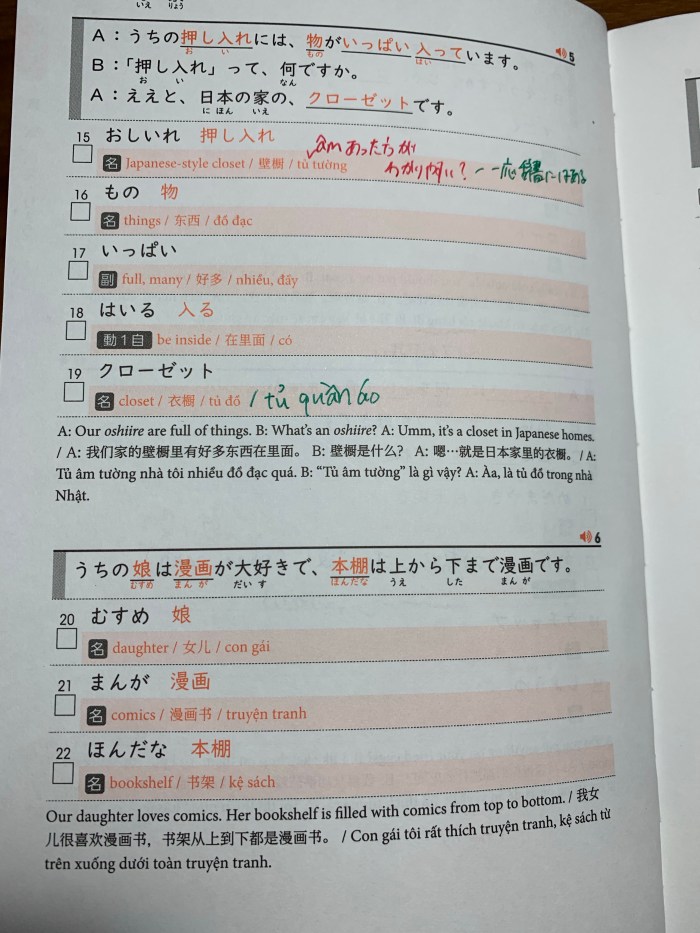 いえ りょう
A：うちの押し入れには、物がいっぱい入っています。
お い もの はい
5
B：「押し入れ」って、何ですか。
お い なん
A：ええと、日本の家の、クローゼットです。
に ほん いえ
15 おしいれ 押し入れ
âm あったらが
名 Japanese-style closet / 壁橱 / tủ tường
わかり ? 一応 辞書にはある
16 もの 物
名 things / 东西 / đồ đạc
17 いっぱい
副 full, many / 好多 / nhiều, đầy
18 はいる 入る
動1自 be inside / 在里面 / có
19 クローゼット
名 closet / 衣橱 / tủ đồ / tủ quần áo
A: Our oshiire are full of things. B: What's an oshiire? A: Umm, it's a closet in Japanese homes.
/ A: 我们家的壁橱里有好多东西在里面。 B: 壁橱是什么? A: 嗯…就是日本家里的衣橱。 / A:
Tủ âm tường nhà tôi nhiều đồ đạc quá. B: “Tủ âm tường” là gì vậy? A: Àa, là tủ đồ trong nhà
Nhật.
6
うちの娘は漫画が大好きで、本棚は上から下まで漫画です。
むすめ まん が だい す ほんだな うえ した まん が
20 むすめ 娘
名 daughter / 女儿 / con gái
21 まんが 漫画
名 comics / 漫画书 / truyện tranh
22 ほんだな 本棚
名 bookshelf / 书架 / kệ sách
Our daughter loves comics. Her bookshelf is filled with comics from top to bottom. / 我女
儿很喜欢漫画书，书架从上到下都是漫画书。 / Con gái tôi rất thích truyện tranh, kệ sách từ
trên xuống dưới toàn truyện tranh.